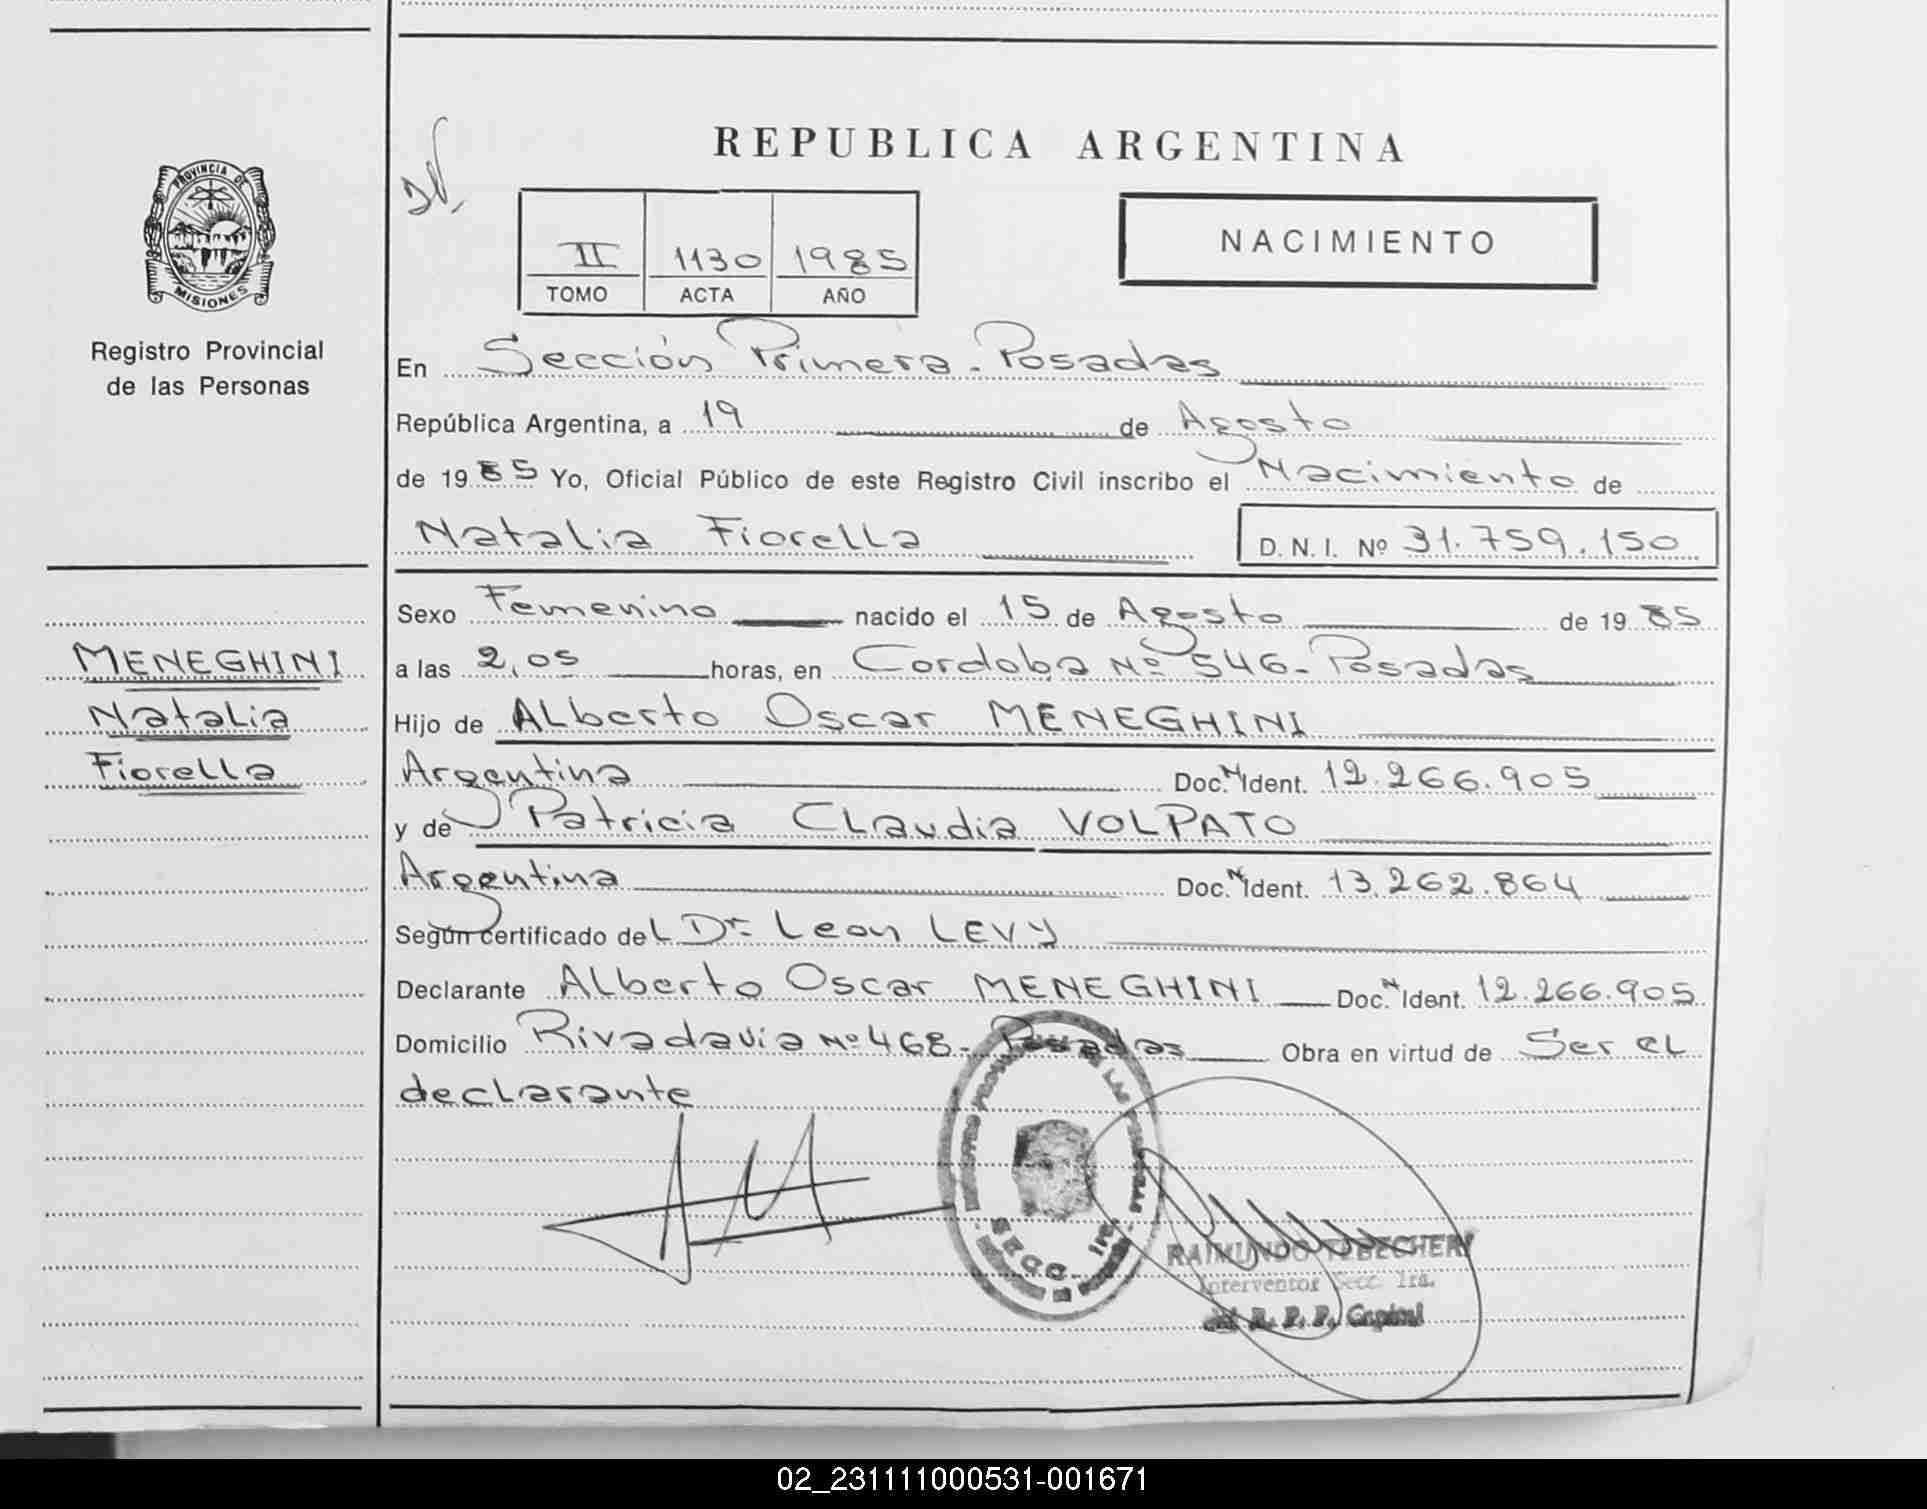 REPUBLICA ARGENTINA
PROVINCIA DE
MISIONES
Registro Provincial
de las Personas
II 1130 1985
TOMO ACTA AÑO
NACIMIENTO
En Sección Primera - Posadas
República Argentina, a 19 de Agosto
de 1985 Yo, Oficial Público de este Registro Civil inscribo el Nacimiento de
Natalia Fiorella D. N. I. Nº 31.759.150
Sexo Femenino nacido el 15 de Agosto de 1985
MENEGHINI
Natalia
Fiorella
a las 2,05 horas, en Cordoba Nº 546 - Posadas
Hijo de Alberto Oscar MENEGHINI
Argentina Doc. N Ident. 12.266.905
y de Patricia Claudia VOLPATO
Argentina Doc. N Ident. 13.262.864
Según certificado del Dr. Leon LEVY
Declarante Alberto Oscar MENEGHINI Doc. N Ident. 12.266.905
Domicilio Rivadavia Nº 468 - Posadas Obra en virtud de Ser el
declarante
SECC. 1ra.
RAIMUNDO TEBECHERI
Interventor Secc. 1ra.
R. P. P. Capital
02_231111000531-001671